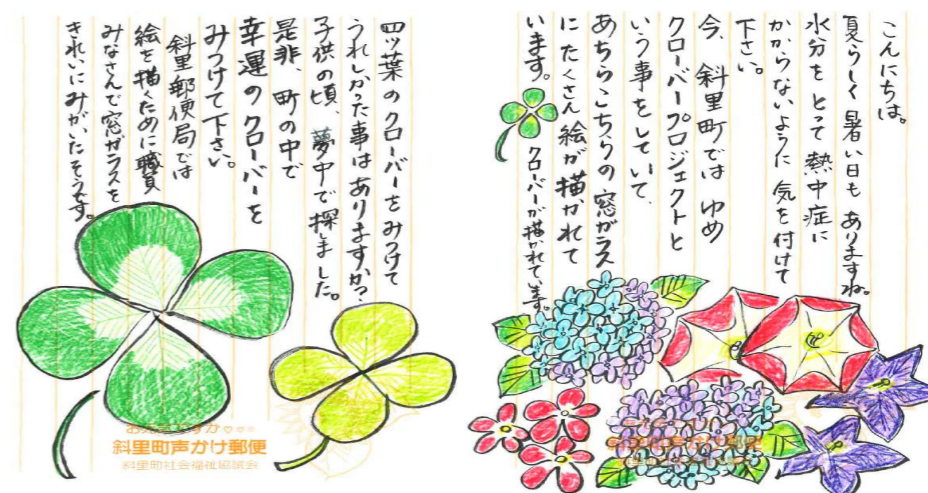 こんにちは。
夏らしく暑い日もありますね。
水分をとって熱中症に
かからないように気を付けて
下さい。
今、斜里町では ゆめ
クローバープロジェクトと
いう事をしていて、
あちらこちらの窓ガラス
にたくさん絵が描かれて
います。
クローバーが描かれています。
四ツ葉のクローバーをみつけて
うれしかった事はありますか?
子供の頃、夢中で探しました。
是非、町の中で
幸運のクローバーを
みつけて下さい。
斜里郵便局では
絵を描くために職員
みなさんで窓ガラスを
きれいにみがいたそうです。
斜里町声かけ郵便
斜里町社会福祉協議会